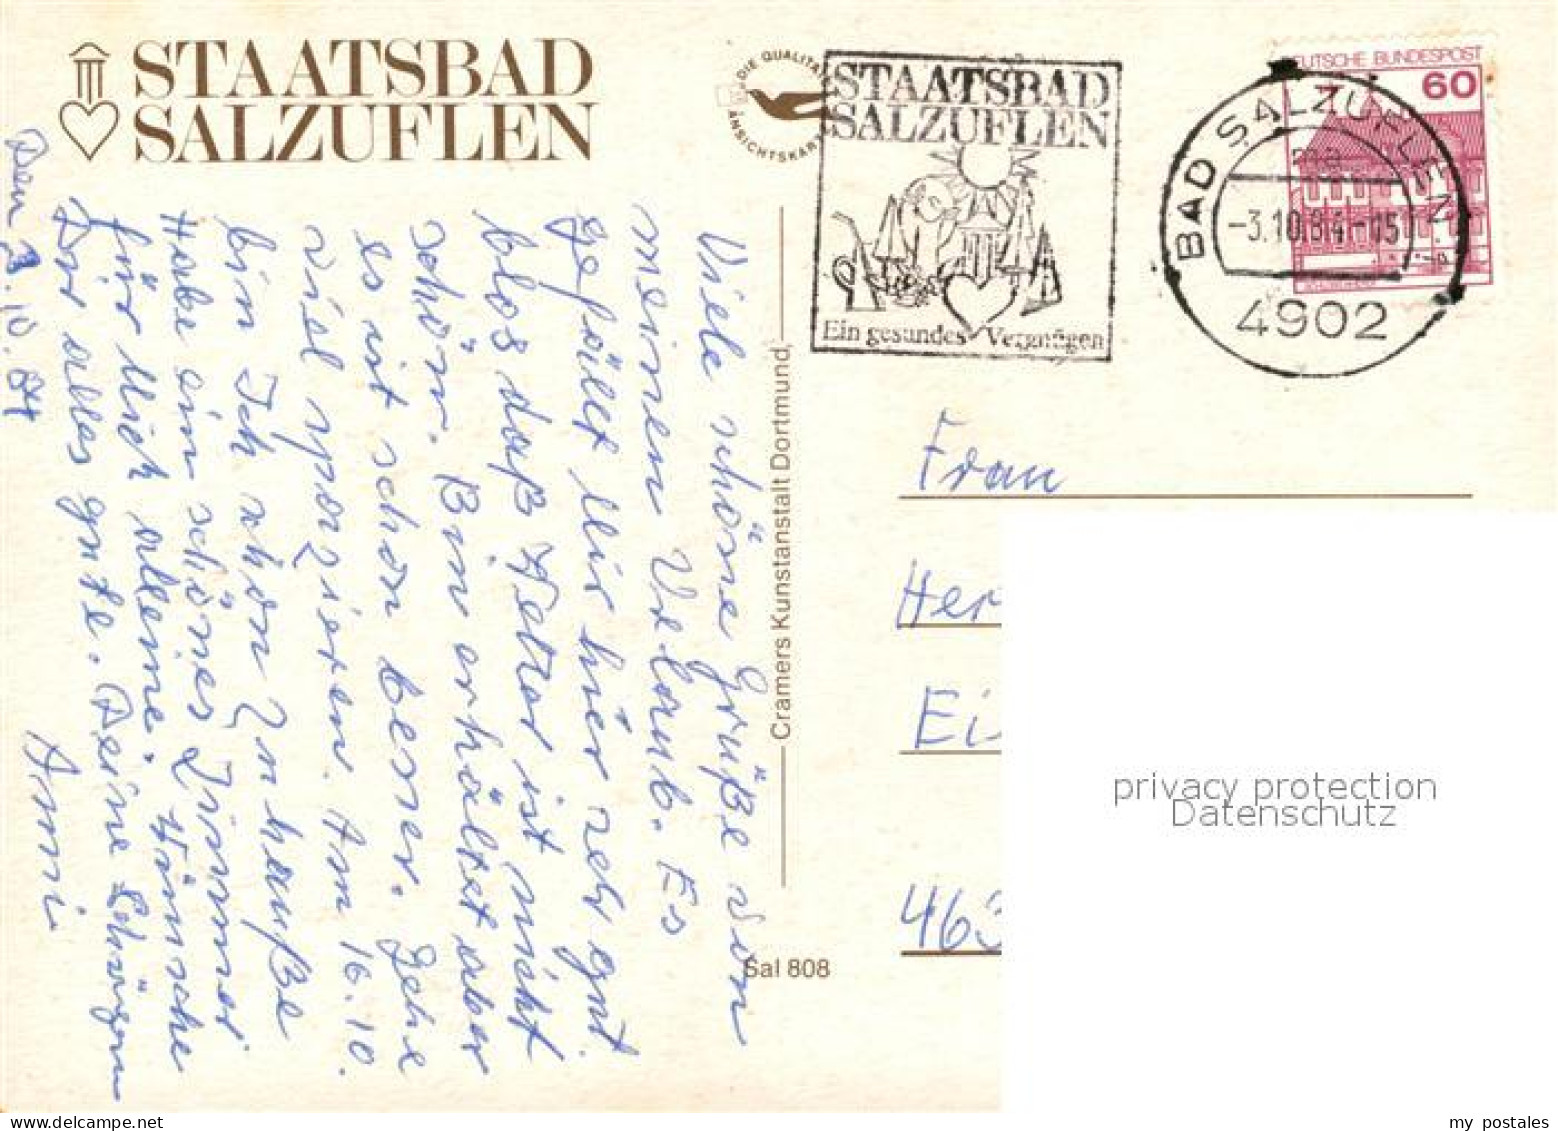 STAATSBAD
SALZUFLEN
DIE QUALITÄTS
ANSICHTSKARTE
STAATSBAD
SALZUFLEN
Ein gesundes Vergnügen
DEUTSCHE BUNDESPOST
60
BAD SALZUFLEN 1
-3.10.84-15
4902
Den 3.10.84
Viele schöne Grüße von
meinen Urlaub. Es
gefällt Mir hier sehr gut
blos daß Wetter ist nicht
schön. Bin erkältet aber
es ist schon besser. Gehe
viel spazieren. Am 16.10.
bin Ich schon Zu hauße
Habe ein schönes Zimmer
für Mich alleine. Wünsche
Dir alles gute. Deine Schwägerin
Anni
Cramers Kunstanstalt Dortmund
Sal 808
Frau
Her
Ei
463
privacy protection
Datenschutz
my postales